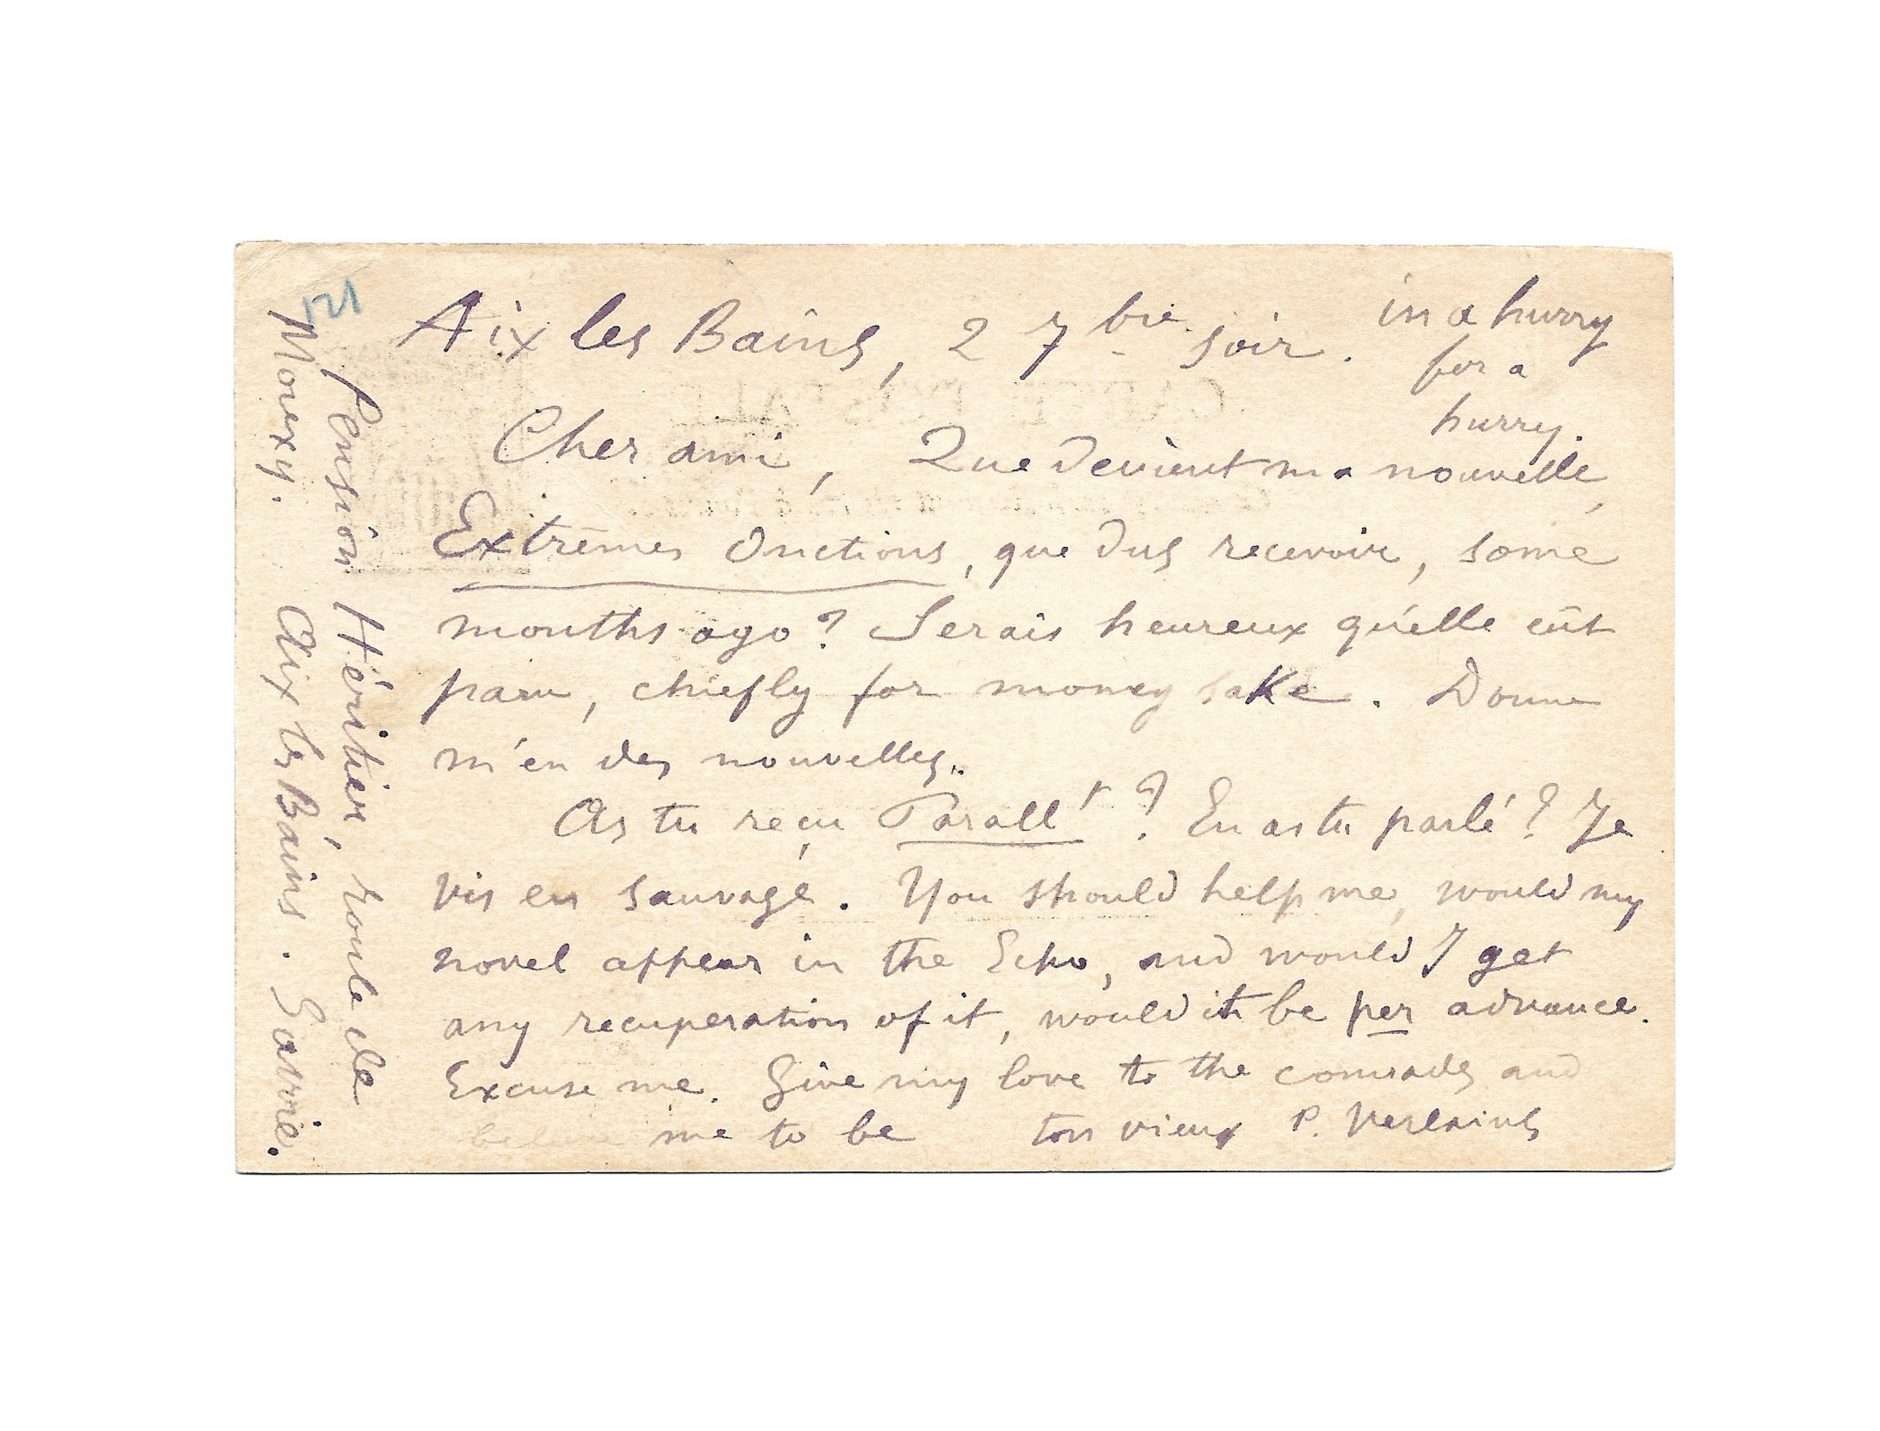 Aix les Bains, 2 7bre soir.
in a hurry
for a
hurry.
Cher ami, Que devient ma nouvelle,
Extrêmes Onctions, que dus recevoir, some
months ago? Serais heureux qu'elle eût
paru, chiefly for money sake. Donne
m'en des nouvelles.
As tu reçu Parallt? En as tu parlé? Je
vis en sauvage. You should help me, would my
novel appear in the Echo, and would I get
any recuperation of it, would it be per advance.
Excuse me. Give my love to the comrades and
believe me to be ton vieux P. Verlaine
Pension Héritier, route de
Mouxy. Aix les Bains. Savoie.
121